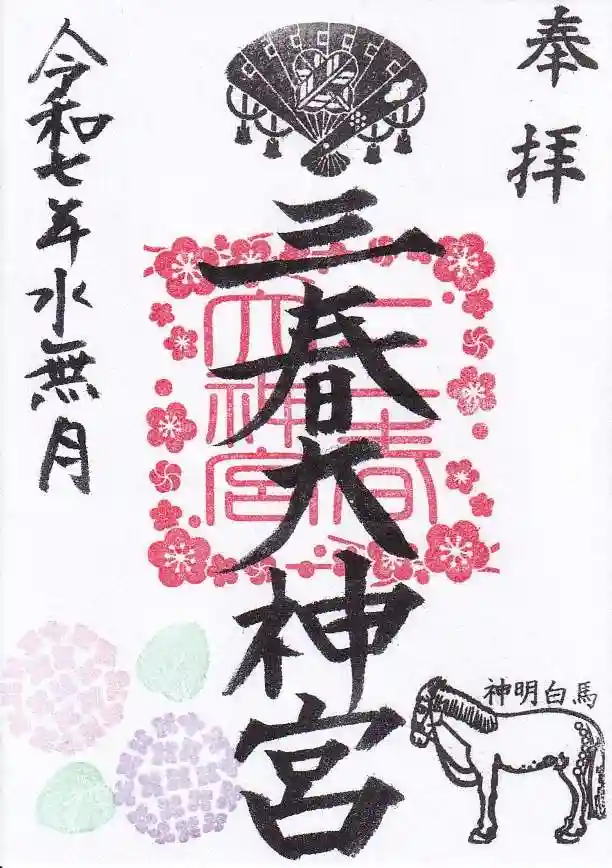 奉拝
三春大神宮
三春大神宮
神明白馬
令和七年水無月